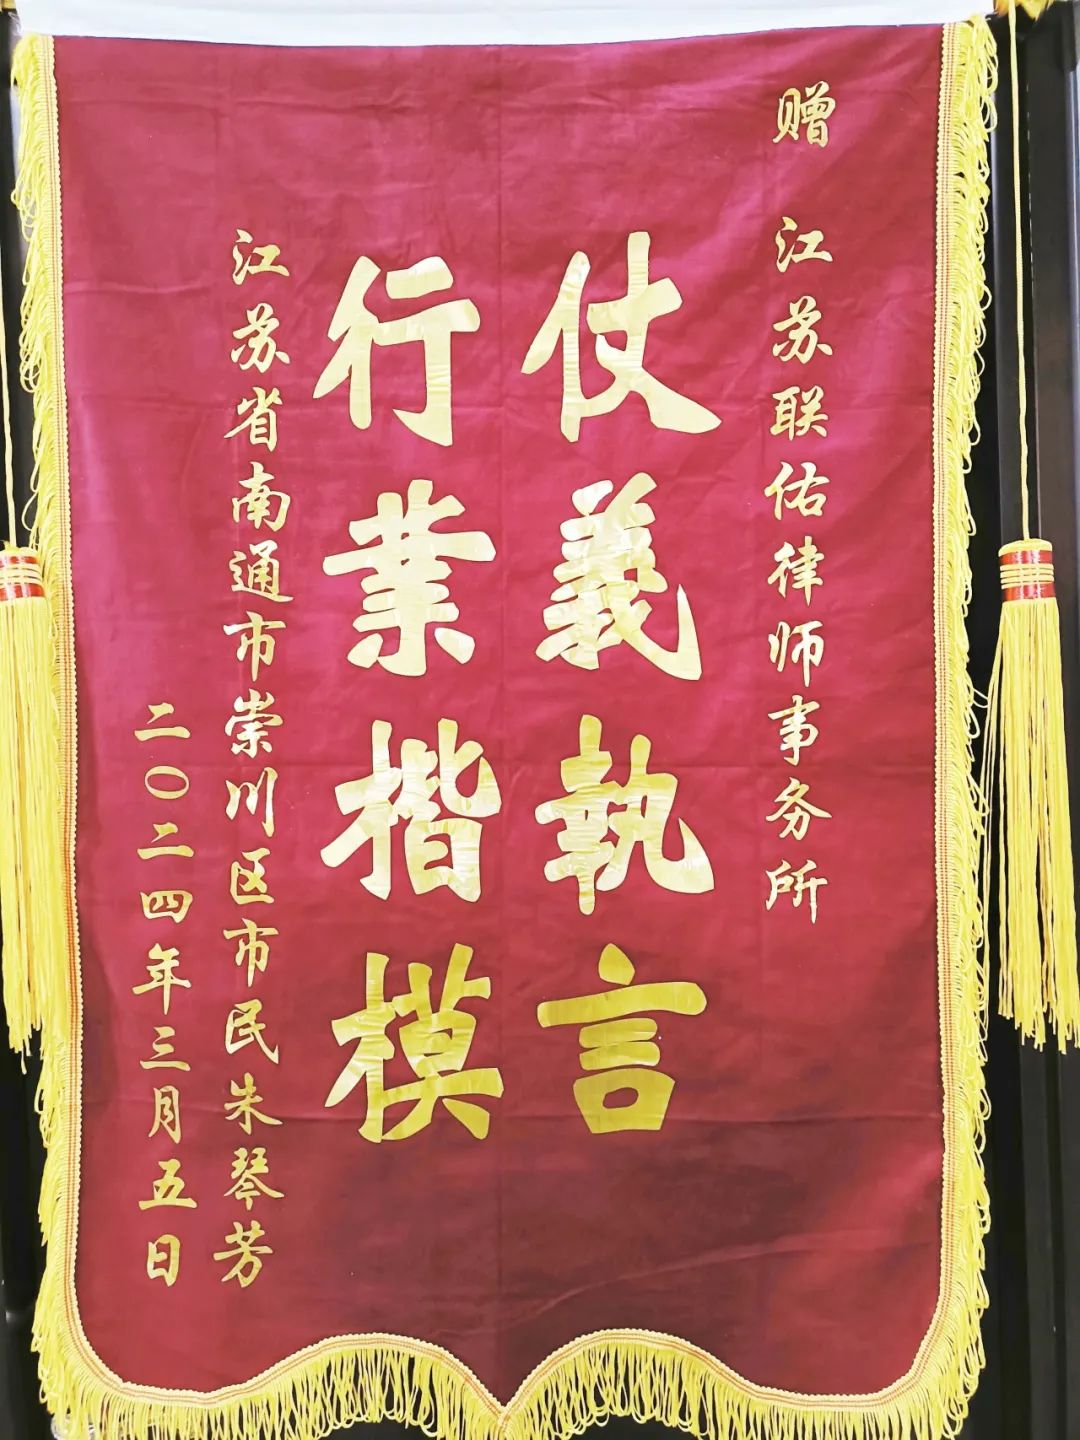 赠 江苏联佑律师事务所
仗義執言
行業楷模
江苏省南通市崇川区市民朱琴芳
二〇二四年三月五日